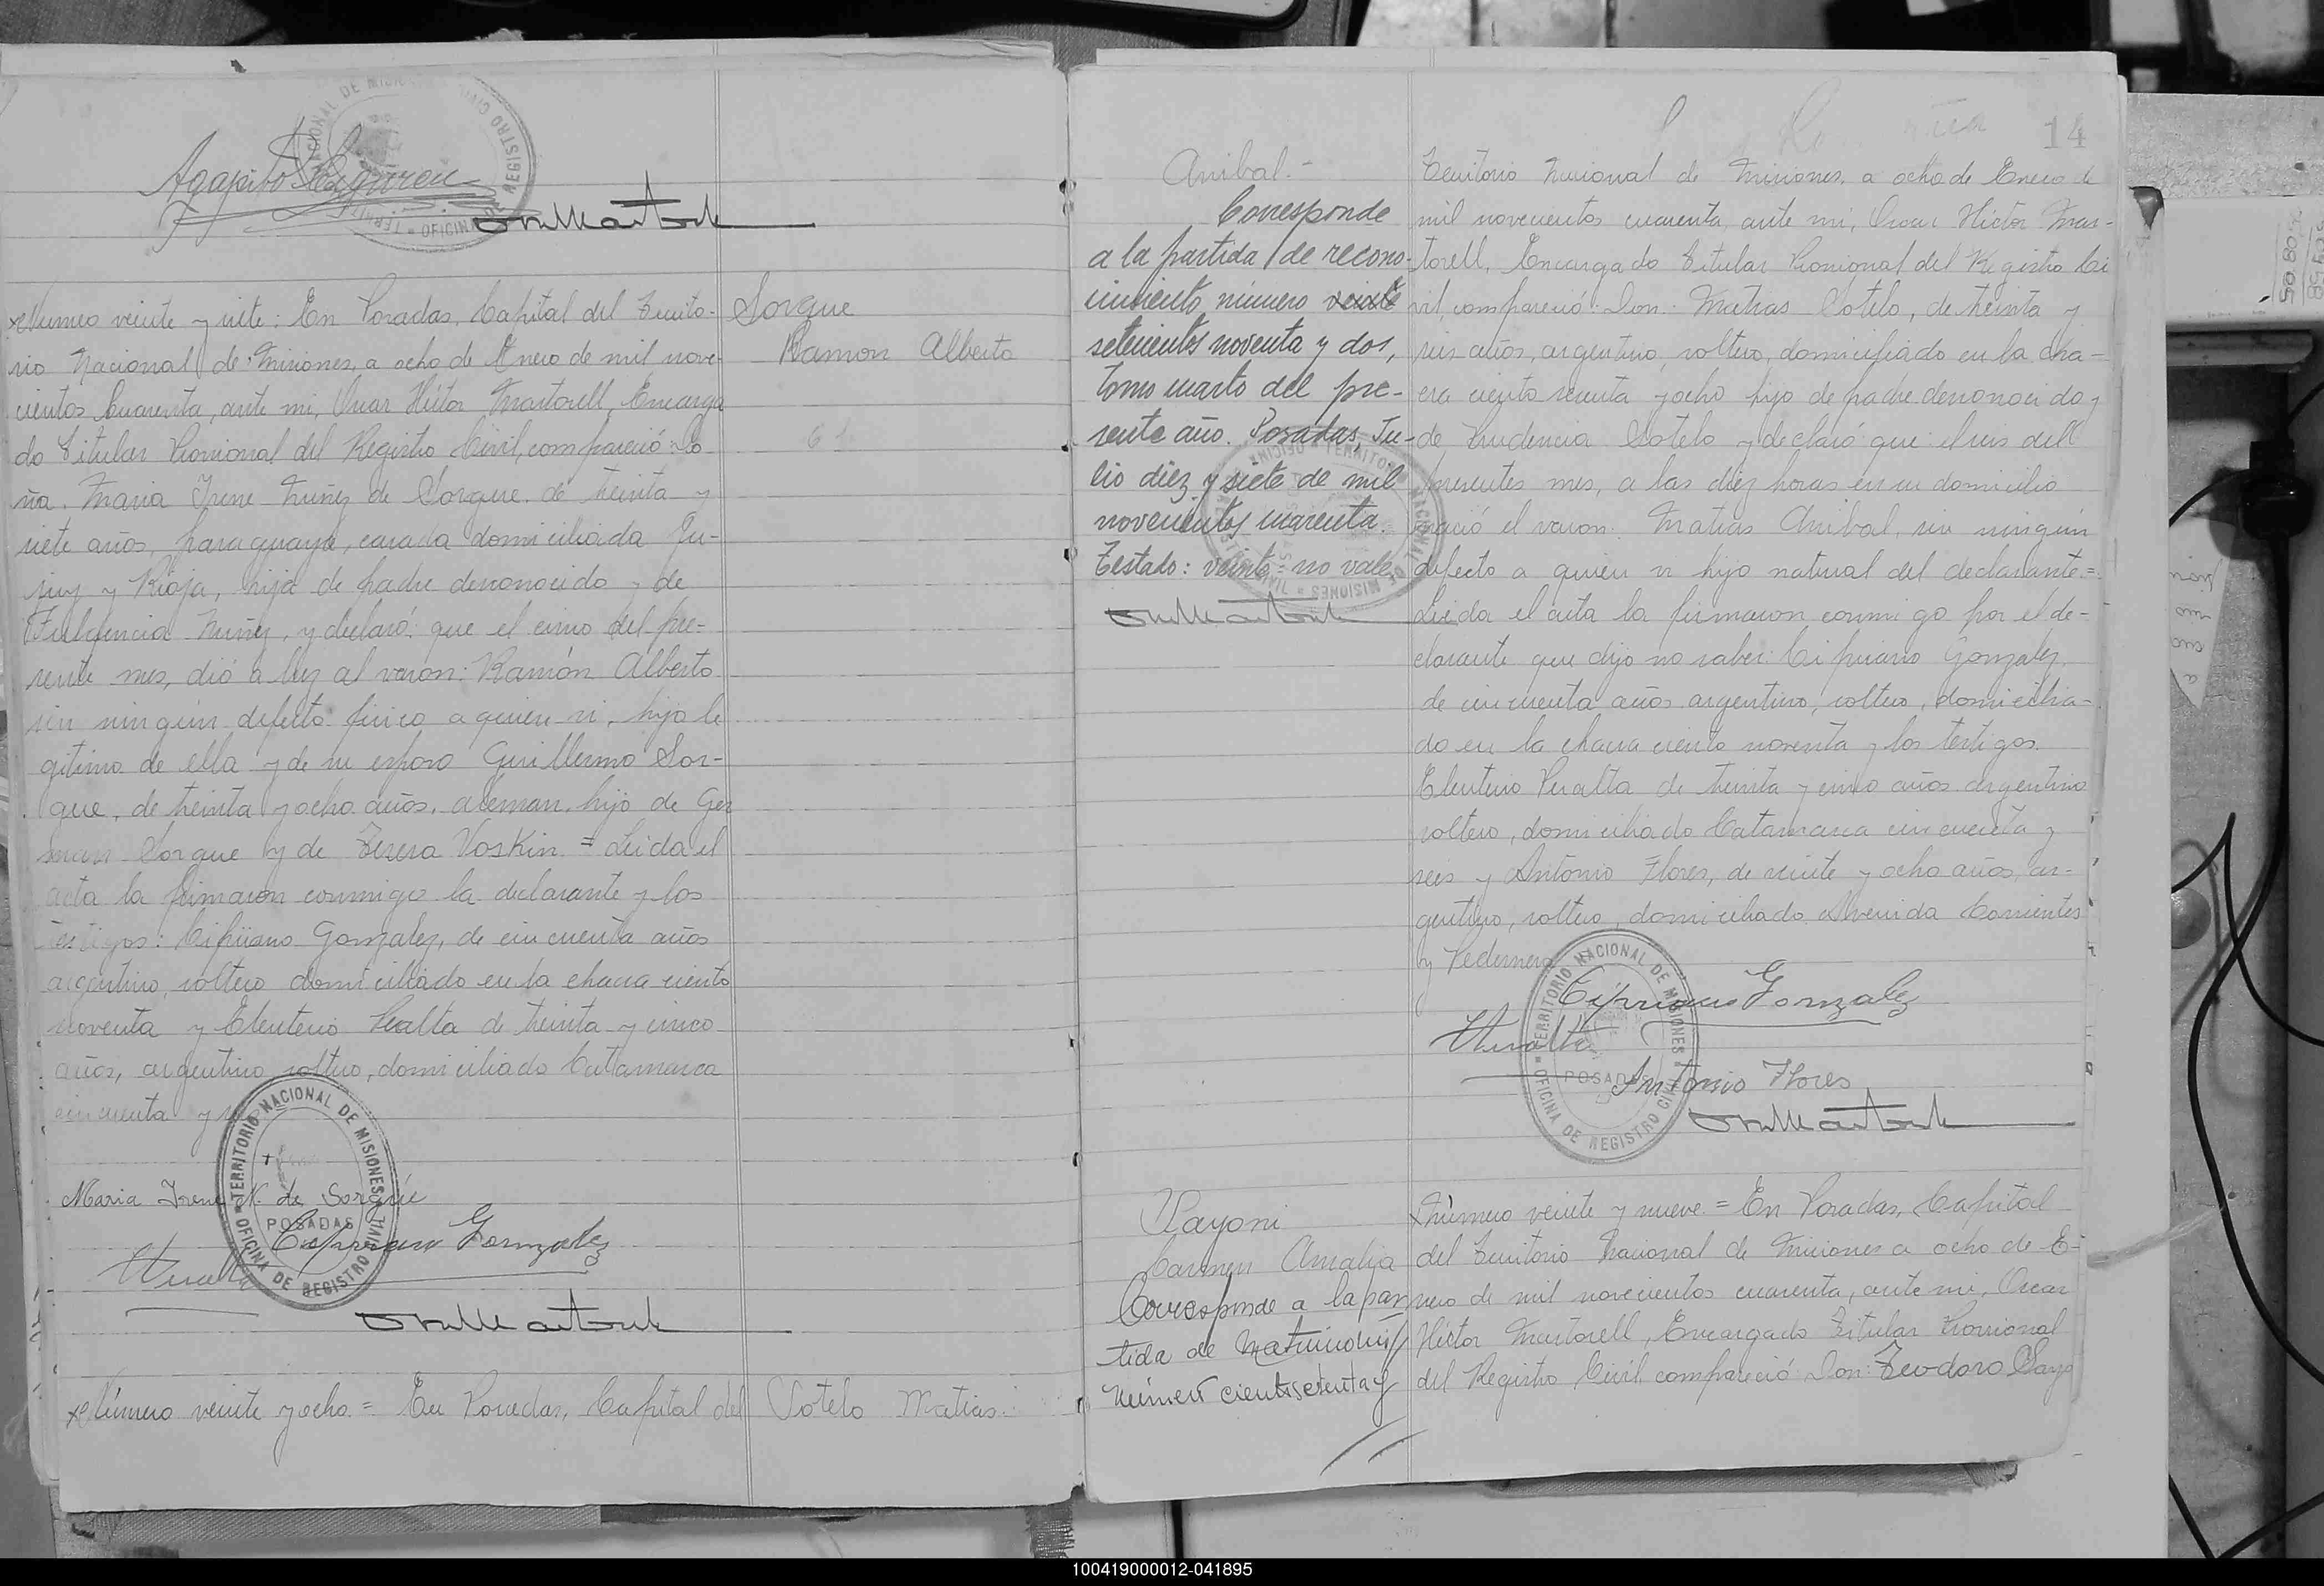 Agapito
Número veinte y siete: En Posadas, Capital del Territo-
rio Nacional de Misiones, a ocho de Enero de mil nove-
cientos cuarenta, ante mi, Oscar Héctor Martorell, Encarga
do Titular Provisional del Registro Civil, compareció: Do
ña. Maria Irene Nuñez de Sorgue. de treinta y
siete años, paraguaya, casada domiciliada Ju-
juy y Rioja, hija de padre desconocido y de
Fulgencia Nuñez, y declaró: que el cinco del pre-
sente mes, dió a luz al varon: Ramón Alberto
sin ningún defecto fisico a quien vi, hijo le
gitimo de ella y de su esposo Guillermo Sor-
gue, de treinta y ocho años, aleman, hijo de Ger
man Sorgue y de Teresa Voskin = Leida el
acta la firmaron conmigo la declarante y los
testigos: Cipriano Gonzalez, de cincuenta años
argentino, soltero domiciliado en la chacra ciento
noventa y Eleuterio Peralta de treinta y cinco
años, argentino, soltero, domiciliado Catamarca
cincuenta y
Maria Irene N. de Sorgue
Cipriano Gonzalez
Número veinte y ocho = En Posadas, Capital del
Sorgue
Ramon Alberto
Sotelo Matias
TERRITORIO NACIONAL DE MISIONES
OFICINA DE REGISTRO CIVIL
POSADAS
14
Anibal.-
Corresponde
a la partida de recono-
cimiento número veinte
setecientos noventa y dos,
tomo cuarto del pre-
sente año. Posadas, Ju-
lio diez y siete de mil
novecientos cuarenta.
Testado: veinte: no vale
Territorio Nacional de Misiones, a ocho de Enero de
mil novecientos cuarenta, ante mi, Oscar Héctor Mar-
torell, Encargado Titular Provisional del Registro Ci
vil, compareció: Don: Matias Sotelo, de treinta y
seis años, argentino, soltero, domiciliado en la cha-
cra ciento sesenta y ocho hijo de padre desconocido y
de Prudencia Sotelo y declaró que: el seis dell
presentes mes, a las diez horas en su domicilio
nació el varon: Matias Anibal, sin ningún
defecto a quien vi hijo natural del declarante.=
Leida el acta la firmaron conmigo por el de-
clarante que dijo no saber: Cipriano Gonzalez
de cincuenta años argentino, soltero, domicilia-
do en la chacra ciento noventa y los testigos
Eleuterio Peralta de treinta y cinco años argentino
soltero, domiciliado Catamarca cincuenta y
seis y Antonio Flores, de veinte y ocho años, ar-
gentino, soltero, domiciliado Avenida Corrientes
y Pedernera
Cipriano Gonzalez
Antonio Flores
TERRITORIO NACIONAL DE MISIONES
OFICINA DE REGISTRO CIVIL
POSADAS
Carmen Amalia
Corresponde a la par
tida de Matrimonio
número ciento setenta y
Número veinte y nueve = En Posadas, Capital
del Territorio Nacional de Misiones a ocho de E-
nero de mil novecientos cuarenta, ante mi, Oscar
Héctor Martorell, Encargado Titular Provisional
del Registro Civil compareció Don: Teodoro
100419000012-041895